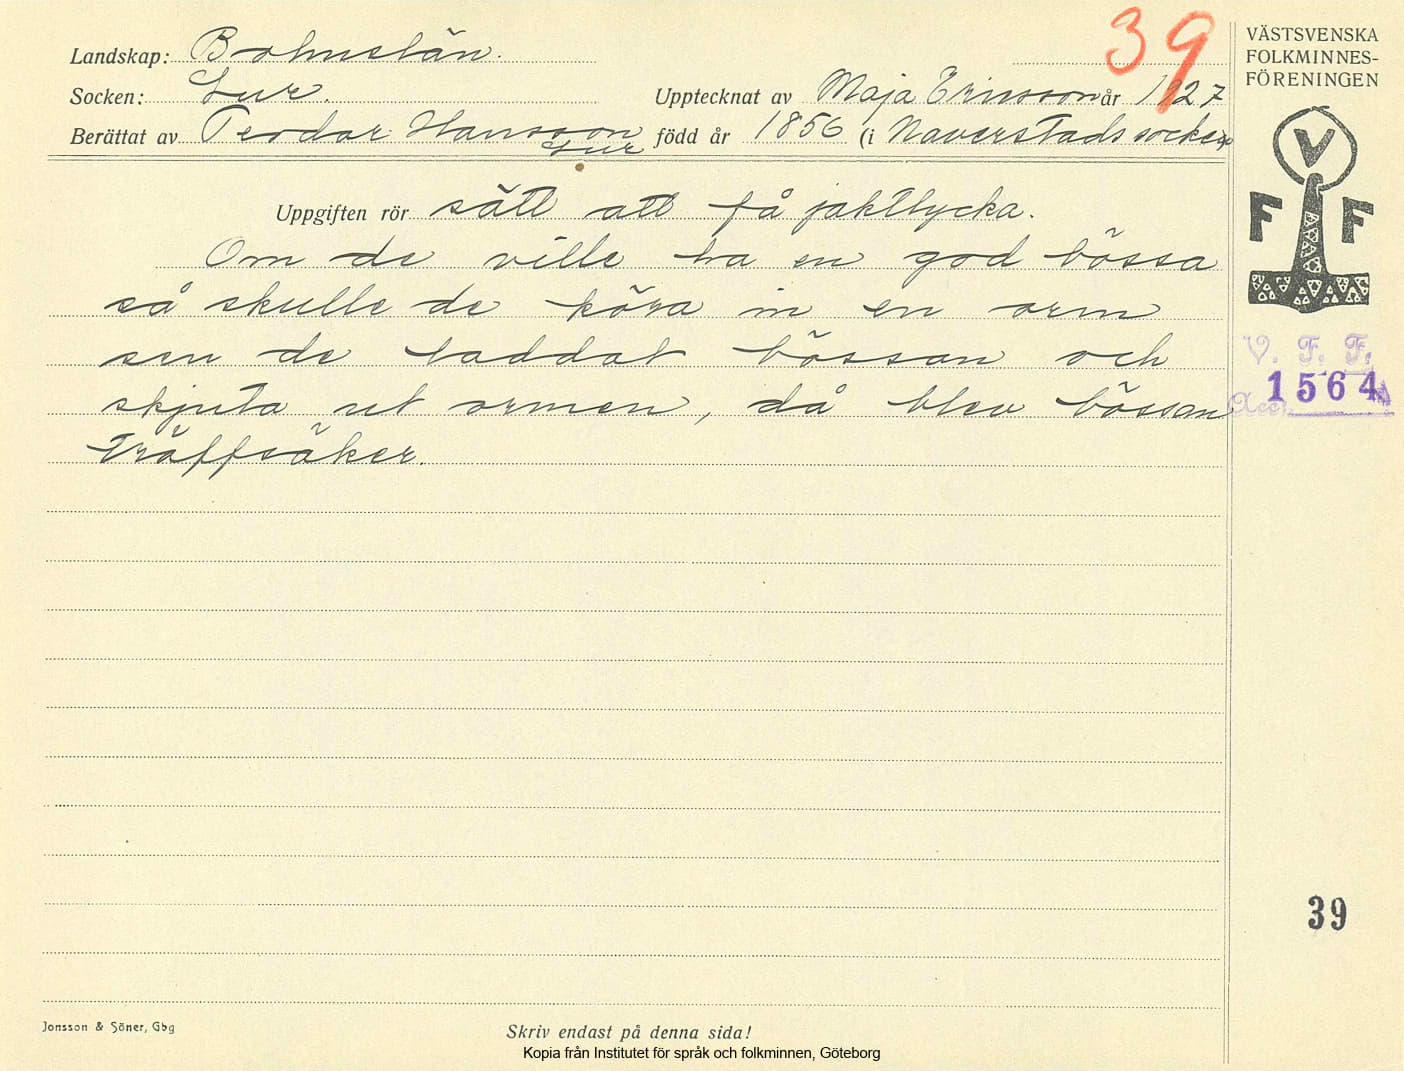 39
Landskap: Bohuslän.
Socken: Lur. Upptecknat av Maja Ericsson år 1927
Berättat av Teodor Hansson född år 1856 (i Naverstads socken
Lur
Uppgiften rör sätt att få jaktlycka.
Om de ville ha en god bössa
så skulle de köra in en orm
sen de laddat bössan och
skjuta ut ormen, då blev bössan
träffsäker.
VÄSTSVENSKA
FOLKMINNES-
FÖRENINGEN
V
F F
V. F. F.
1564
Acc.
39
Jonsson & Söner, Gbg
Skriv endast på denna sida!
Kopia från Institutet för språk och folkminnen, Göteborg